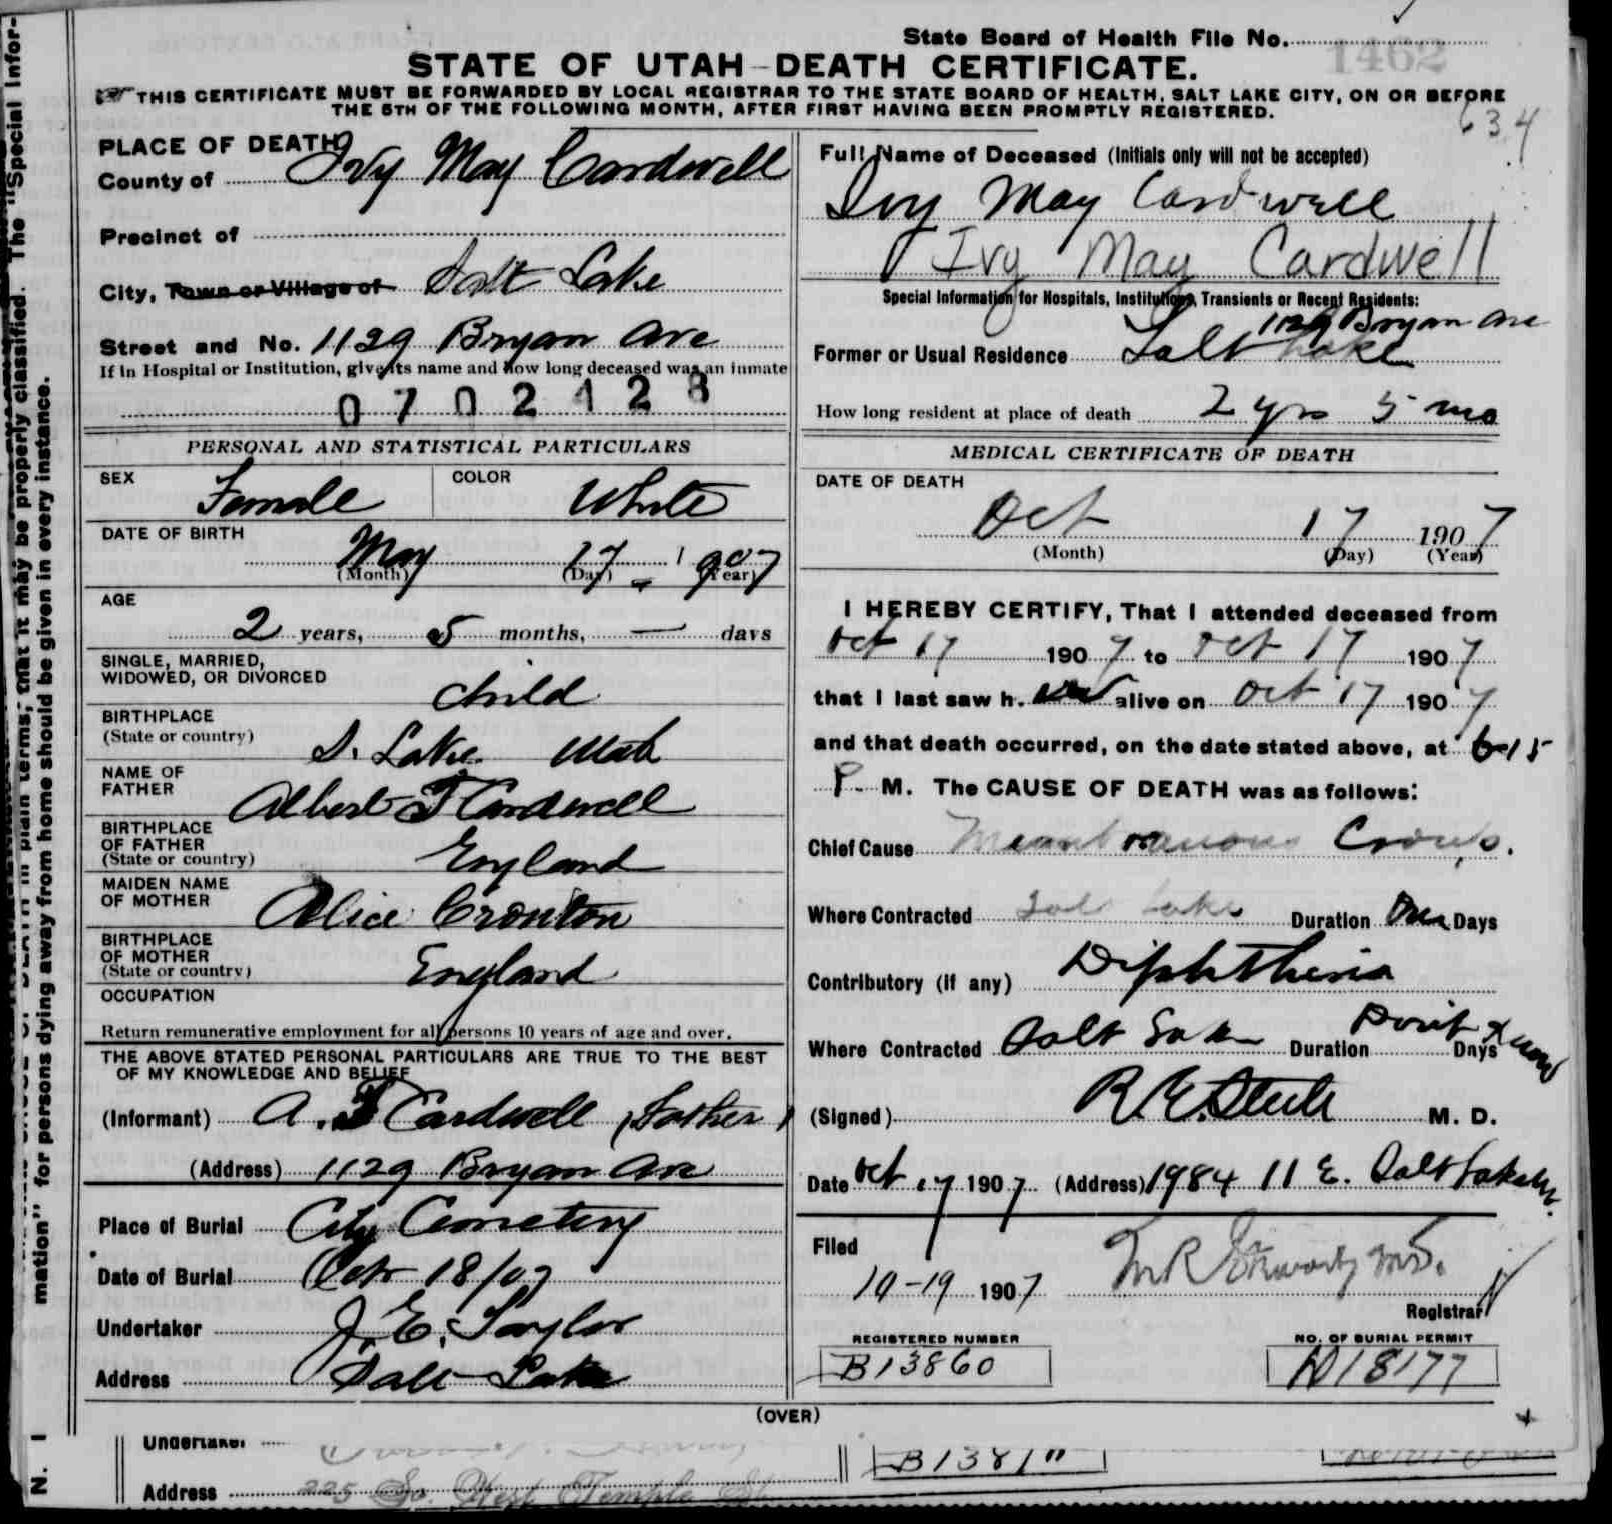 State Board of Health File No. 1462
STATE OF UTAH-DEATH CERTIFICATE.
THIS CERTIFICATE MUST BE FORWARDED BY LOCAL REGISTRAR TO THE STATE BOARD OF HEALTH, SALT LAKE CITY, ON OR BEFORE
THE 5TH OF THE FOLLOWING MONTH, AFTER FIRST HAVING BEEN PROMPTLY REGISTERED.
634
PLACE OF DEATH
County of Ivy May Cardwell
Precinct of
City, Town or Village of Salt Lake
Street and No. 1129 Bryan Ave
If in Hospital or Institution, give its name and how long deceased was an inmate
0702128
PERSONAL AND STATISTICAL PARTICULARS
SEX Female COLOR White
DATE OF BIRTH
May 17 - 1907
(Month) (Day) (Year)
AGE
2 years, 5 months, — days
SINGLE, MARRIED,
WIDOWED, OR DIVORCED
child
BIRTHPLACE
(State or country)
S. Lake Utah
NAME OF
FATHER
Albert F Cardwell
BIRTHPLACE
OF FATHER
(State or country)
England
MAIDEN NAME
OF MOTHER
Alice Cronton
BIRTHPLACE
OF MOTHER
(State or country)
England
OCCUPATION
Return remunerative employment for all persons 10 years of age and over.
THE ABOVE STATED PERSONAL PARTICULARS ARE TRUE TO THE BEST
OF MY KNOWLEDGE AND BELIEF
(Informant) A. F Cardwell (Father)
(Address) 1129 Bryan Ave
Place of Burial City Cemetery
Date of Burial Oct 18/07
Undertaker J. E. Taylor
Address Salt Lake
Full Name of Deceased (Initials only will not be accepted)
Ivy May Cardwell
Ivy May Cardwell
Special Information for Hospitals, Institutions, Transients or Recent Residents:
1129 Bryan Ave
Former or Usual Residence Salt Lake
How long resident at place of death 2 yrs 5 mo
MEDICAL CERTIFICATE OF DEATH
DATE OF DEATH
Oct 17 1907
(Month) (Day) (Year)
I HEREBY CERTIFY, That I attended deceased from
Oct 17 1907 to Oct 17 1907
that I last saw h. alive on Oct 17 1907
and that death occurred, on the date stated above, at 6-15
P. M. The CAUSE OF DEATH was as follows:
Chief Cause Membranous Croup.
Where Contracted Salt Lake Duration One Days
Contributory (if any) Diphtheria
Where Contracted Salt Lake Duration Don't Know Days
(Signed) R. E. Steele M. D.
Date Oct 17 1907 (Address) 1984 11 E. Salt Lake
Filed
10-19 1907
Registrar
REGISTERED NUMBER NO. OF BURIAL PERMIT
B13860 D18177
(OVER)
Undertaker
B1381
Address 225 So. West Temple St
mation" for persons dying away from home should be given in every instance.
in plain terms, that it may be properly classified. The "Special Infor-
N.